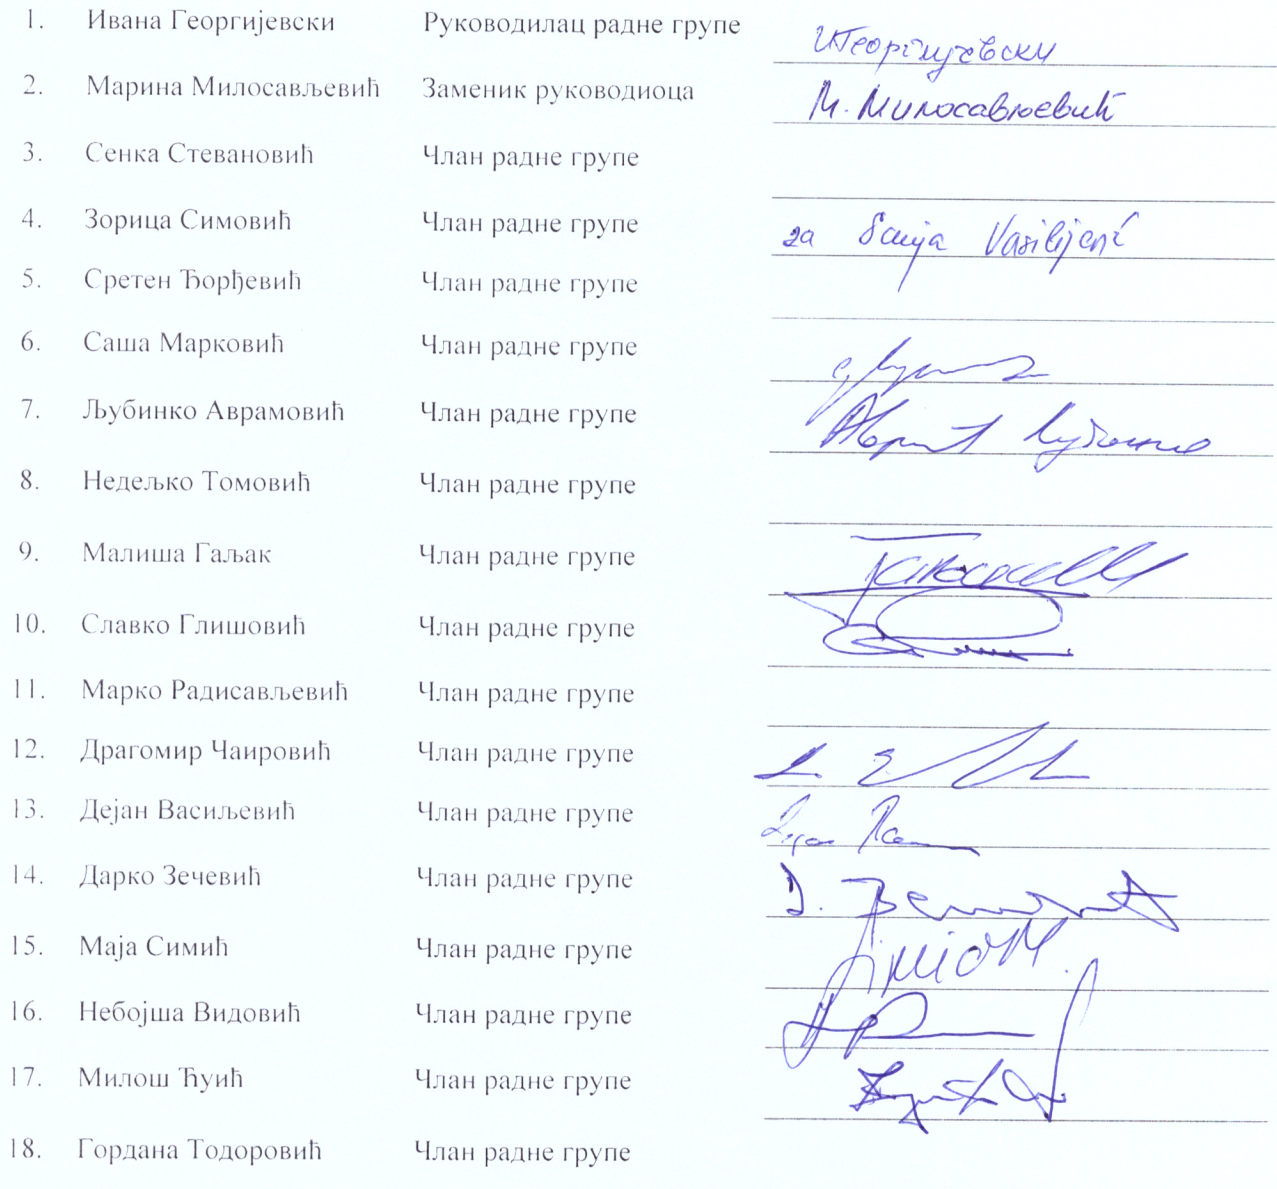 1. Ивана Георгијевски Руководилац радне групе ИГеоргијевски
2. Марина Милосављевић Заменик руководиоца М. Милосављевић
3. Сенка Стевановић Члан радне групе
4. Зорица Симовић Члан радне групе за Sanja Vasilijević
5. Сретен Ђорђевић Члан радне групе
6. Саша Марковић Члан радне групе
7. Љубинко Аврамовић Члан радне групе
8. Недељко Томовић Члан радне групе
9. Малиша Гаљак Члан радне групе
10. Славко Глишовић Члан радне групе
11. Марко Радисављевић Члан радне групе
12. Драгомир Чаировић Члан радне групе
13. Дејан Васиљевић Члан радне групе
14. Дарко Зечевић Члан радне групе
15. Маја Симић Члан радне групе
16. Небојша Видовић Члан радне групе
17. Милош Ћуић Члан радне групе
18. Гордана Тодоровић Члан радне групе